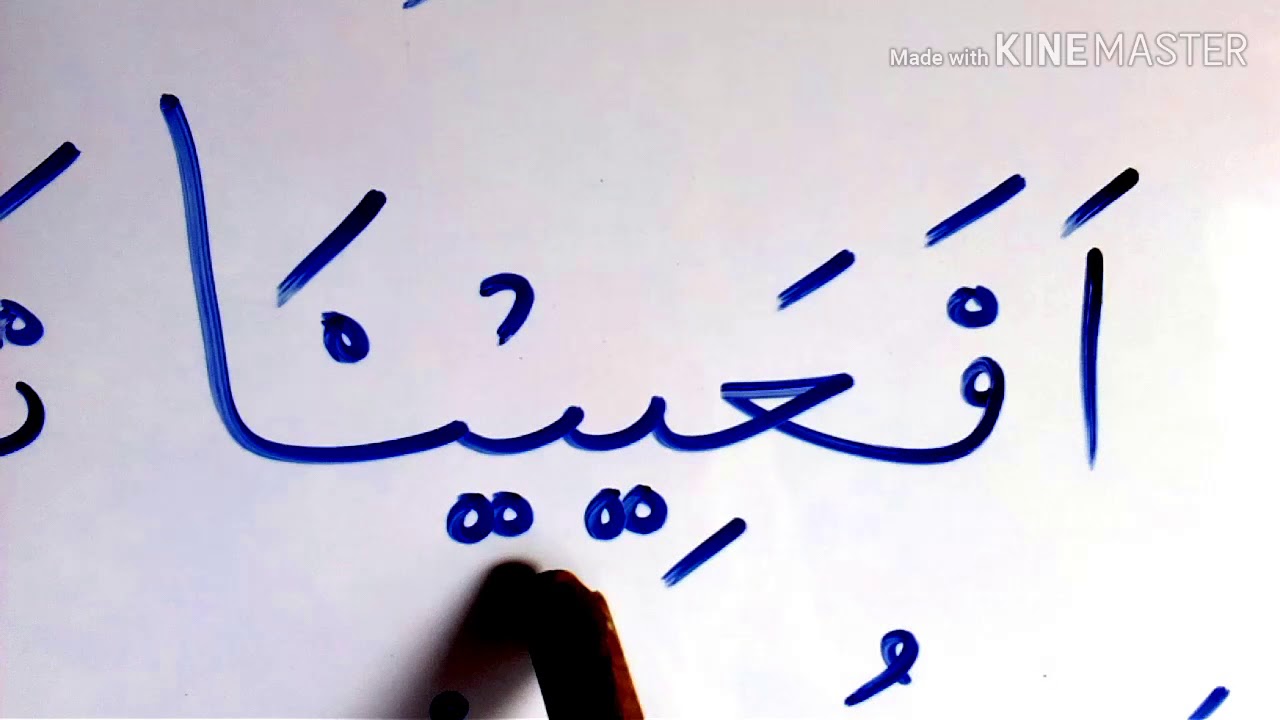 Made with KINEMASTER
اَفَعَيِيْنَا